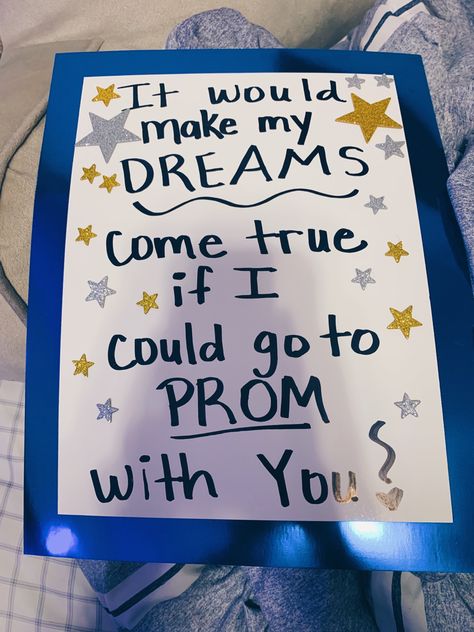 It would
make my
DREAMS
come true
if I
could go to
PROM
with You?